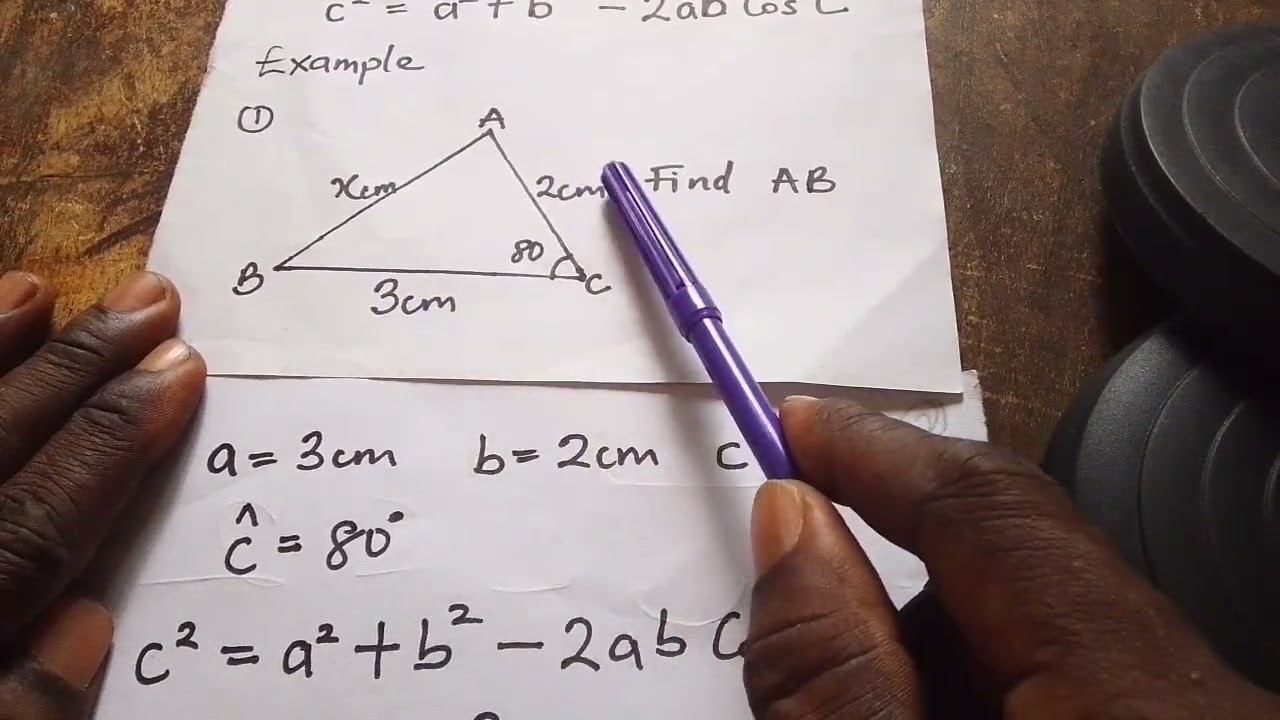 c² = a² + b² - 2ab Cos C
Example
①
A
xcm
2cm
Find AB
80
B
C
3cm
a = 3cm b = 2cm c
Ĉ = 80°
c² = a² + b² - 2ab